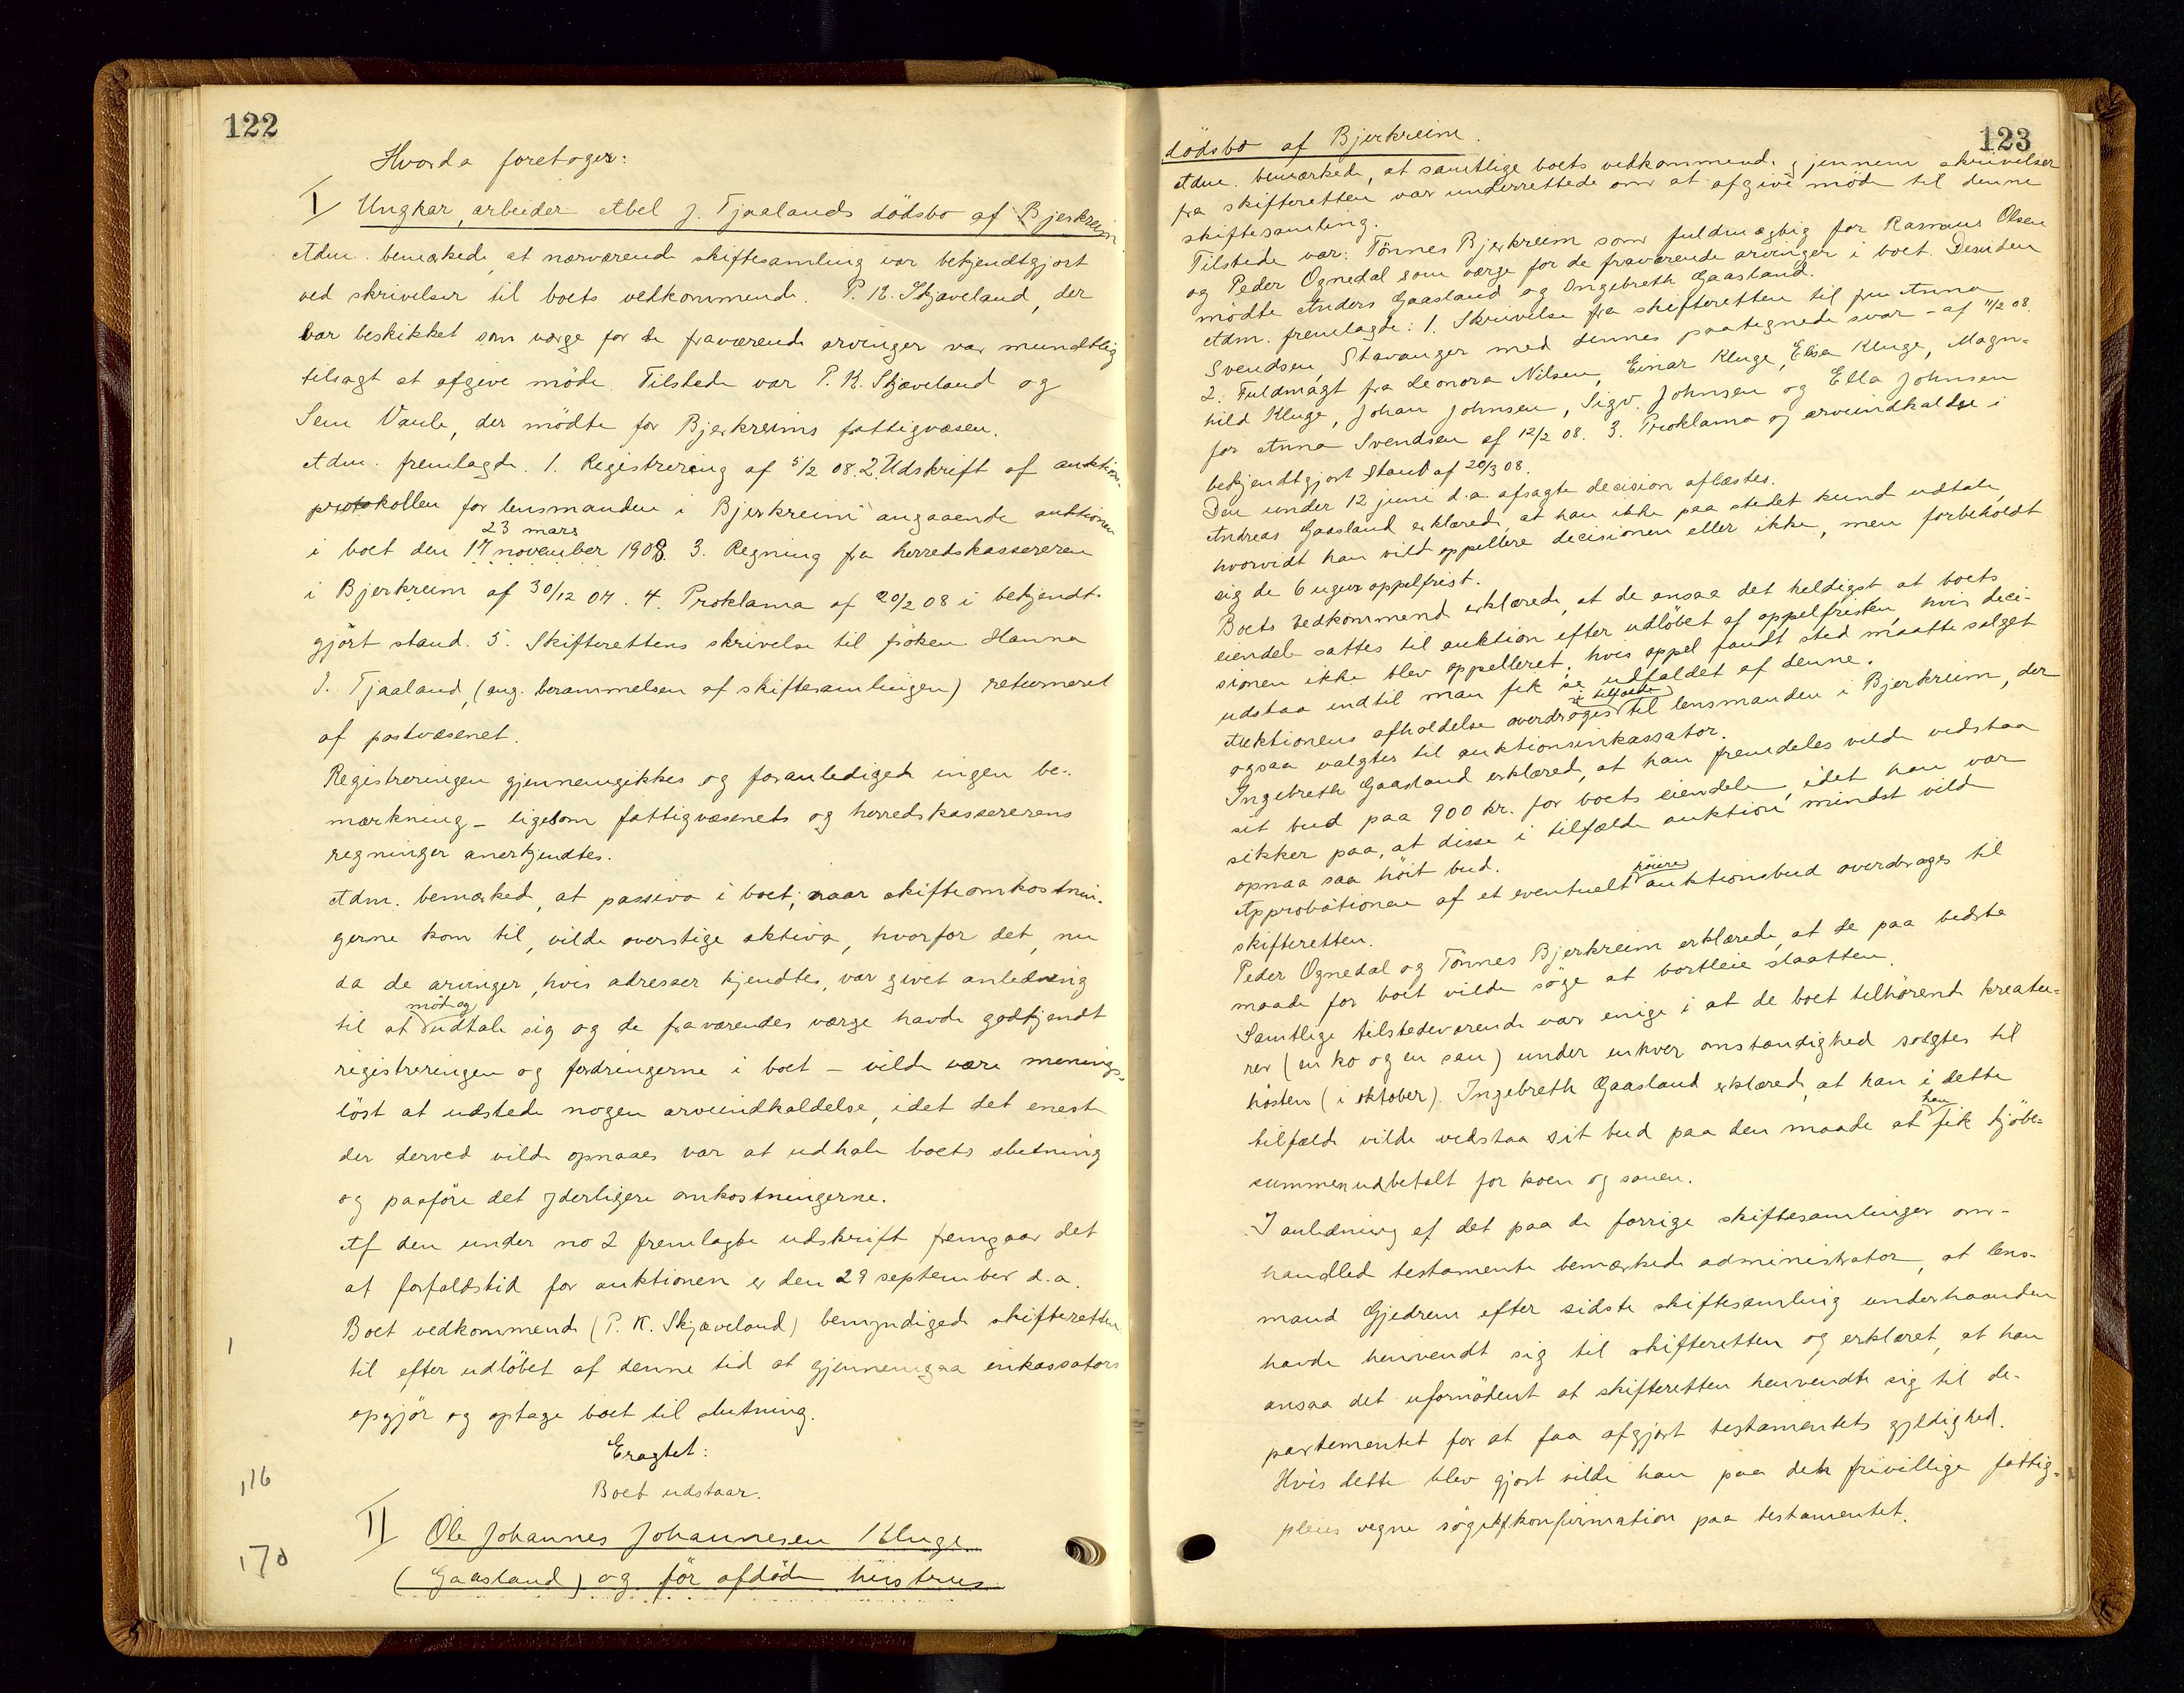 122
Hvorda foretoges:
I Ungkar, arbeider Abel J. Tjaalands dödsbo af Bjerkreim.
Adm. bemerkede, at nærværende skiftesamling var bekjendtgjort
ved skrivelser til boets vedkommende. P. K. Skjæveland, der
var beskikket som værge for de fraværende arvinger var mundtlig
tilsagt at afgive möde. Tilstede var P. K. Skjæveland og
Sem Vaule, der mödte for Bjerkreims fattigvæsen.
Adm. fremlagde. 1. Registrering af 5/2 08. 2. Udskrift af auktions-
protokollen for lensmanden i Bjerkreim angaaende auktionen
23 mars
i boet den 17 november 1908. 3. Regning fra herredskassereren
i Bjerkreim af 30/12 07. 4. Proklama af 20/2 08 i bekjendt-
gjört stand. 5. Skifterettens skrivelse til fröken Hanna
J. Tjaaland, (ang. berammelsen af skiftesamlingen) returneret
af postvæsenet.
Registreringen gjennemgikkes og foranledigede ingen be-
mærkning - ligesom fattigvæsenets og herredskassererens
regninger anerkjendtes.
Adm. bemærked, at passiva i boet, naar skifteomkostnin-
gerne kom til, vilde overstige aktiva, hvorfor det, nu
da de arvinger, hvis adresser kjendtes, var givet anledning
möde og
til at udtale sig og de fraværendes værge havde godkjendt
registreringen og fordringerne i boet - vilde være menings-
löst at udstede nogen arveindkaldelse, idet det eneste
der derved vilde opnaaes var at udhale boets slutning
og paaföre det yderligere omkostningerne.
Af den under no 2 fremlagte udskrift fremgaar det
at forfaldstid for auktionen er den 29 september d.a.
Boet vedkommende (P. K. Skjæveland) bemyndigede skifteretten
til efter udlöbet af denne tid at gjennemgaa inkassators
opgjör og optage boet til slutning.
Eragtet:
Boet udstaar.
II Ole Johannes Johannesen Kluge
(Gaasland) og för afdöde hustrues
1
116
170
123
dödsbo af Bjerkreim.
Adm. bemærkede, at samtlige boets vedkommende gjennem skrivelser
fra skifteretten var underrettede om at afgive möde til denne
skiftesamling.
Tilstede var: Tönnes Bjerkreim som fuldmægtig for Rasmus Olsen
og Peder Ognedal som værge for de fraværende arvinger i boet. Desuden
mödte Anders Gaasland og Ingebreth Gaasland.
Adm. fremlagde: 1. Skrivelse fra skifteretten til fru Anna
Svendsen, Stavanger med dennes paategnede svar - af 11/2 08.
2. Fuldmagt fra Leonora Nilsen, Einar Kluge, Elisa Kluge, Magn-
hild Kluge, Johan Johnsen, Sigv. Johnsen og Ella Johnsen
for Anna Svendsen af 12/2 08. 3. Proklama og arveindkaldelse i
bekjendtgjort stand af 20/3 08.
Den under 12 juni d.a. afsagte decision aflæstes.
Andreas Gaasland erklærede, at han ikke paa stedet kunde udtale,
hvorvidt han vilde appellere decisionen eller ikke, men forbeholdt
sig de 6 ugers appelfrist.
Boets vedkommende erklærede, at de ansaa det heldigst at boets
eiendele sattes til auktion efter udlöbet af appelfristen, hvis deci-
sionen ikke blev appelleret; hvis appel fandt sted maatte salget
udstaa indtil man fik se udfaldet af denne.
i tilfælde
Auktionens afholdelse overdröges til lensmanden i Bjerkreim, der
ogsaa valgtes til auktionsinkassator.
Ingebreth Gaasland erklæred, at han fremdeles vilde vedstaa
sit bud paa 900 kr. for boets eiendele, idet han var
sikker paa, at disse i tilfælde auktion mindst vilde
opnaa saa höit bud.
höiere
Approbationen af et eventuelt auktionsbud overdrages til
skifteretten.
Peder Ognedal og Tönnes Bjerkreim erklærede, at de paa bedste
maade for boet vilde söge at bortleie slaatten.
Samtlige tilstedeværende var enige i at de boet tilhörende kreatu-
rer (en ko og en sau) under enhver omstændighed solgtes til
hösten (i oktober). Ingebreth Gaasland erklæred, at han i dette
han
tilfælde vilde vedstaa sit bud paa den maade at fik kjöbe-
summen udbetalt for koen og sauen.
I anledning af det paa de forrige skiftesamlinger om-
handlede testamente bemærkede administrator, at lens-
mand Gjedrem efter sidste skiftesamling underhaanden
havde henvendt sig til skifteretten og erklæret, at han
ansaa det ufornödent at skifteretten henvendte sig til de-
partementet for at faa afgjort testamentets gyldighed.
Hvis dette blev gjort vilde han paa den frivillige fattig-
pleies vegne söge konfirmation paa testamentet.